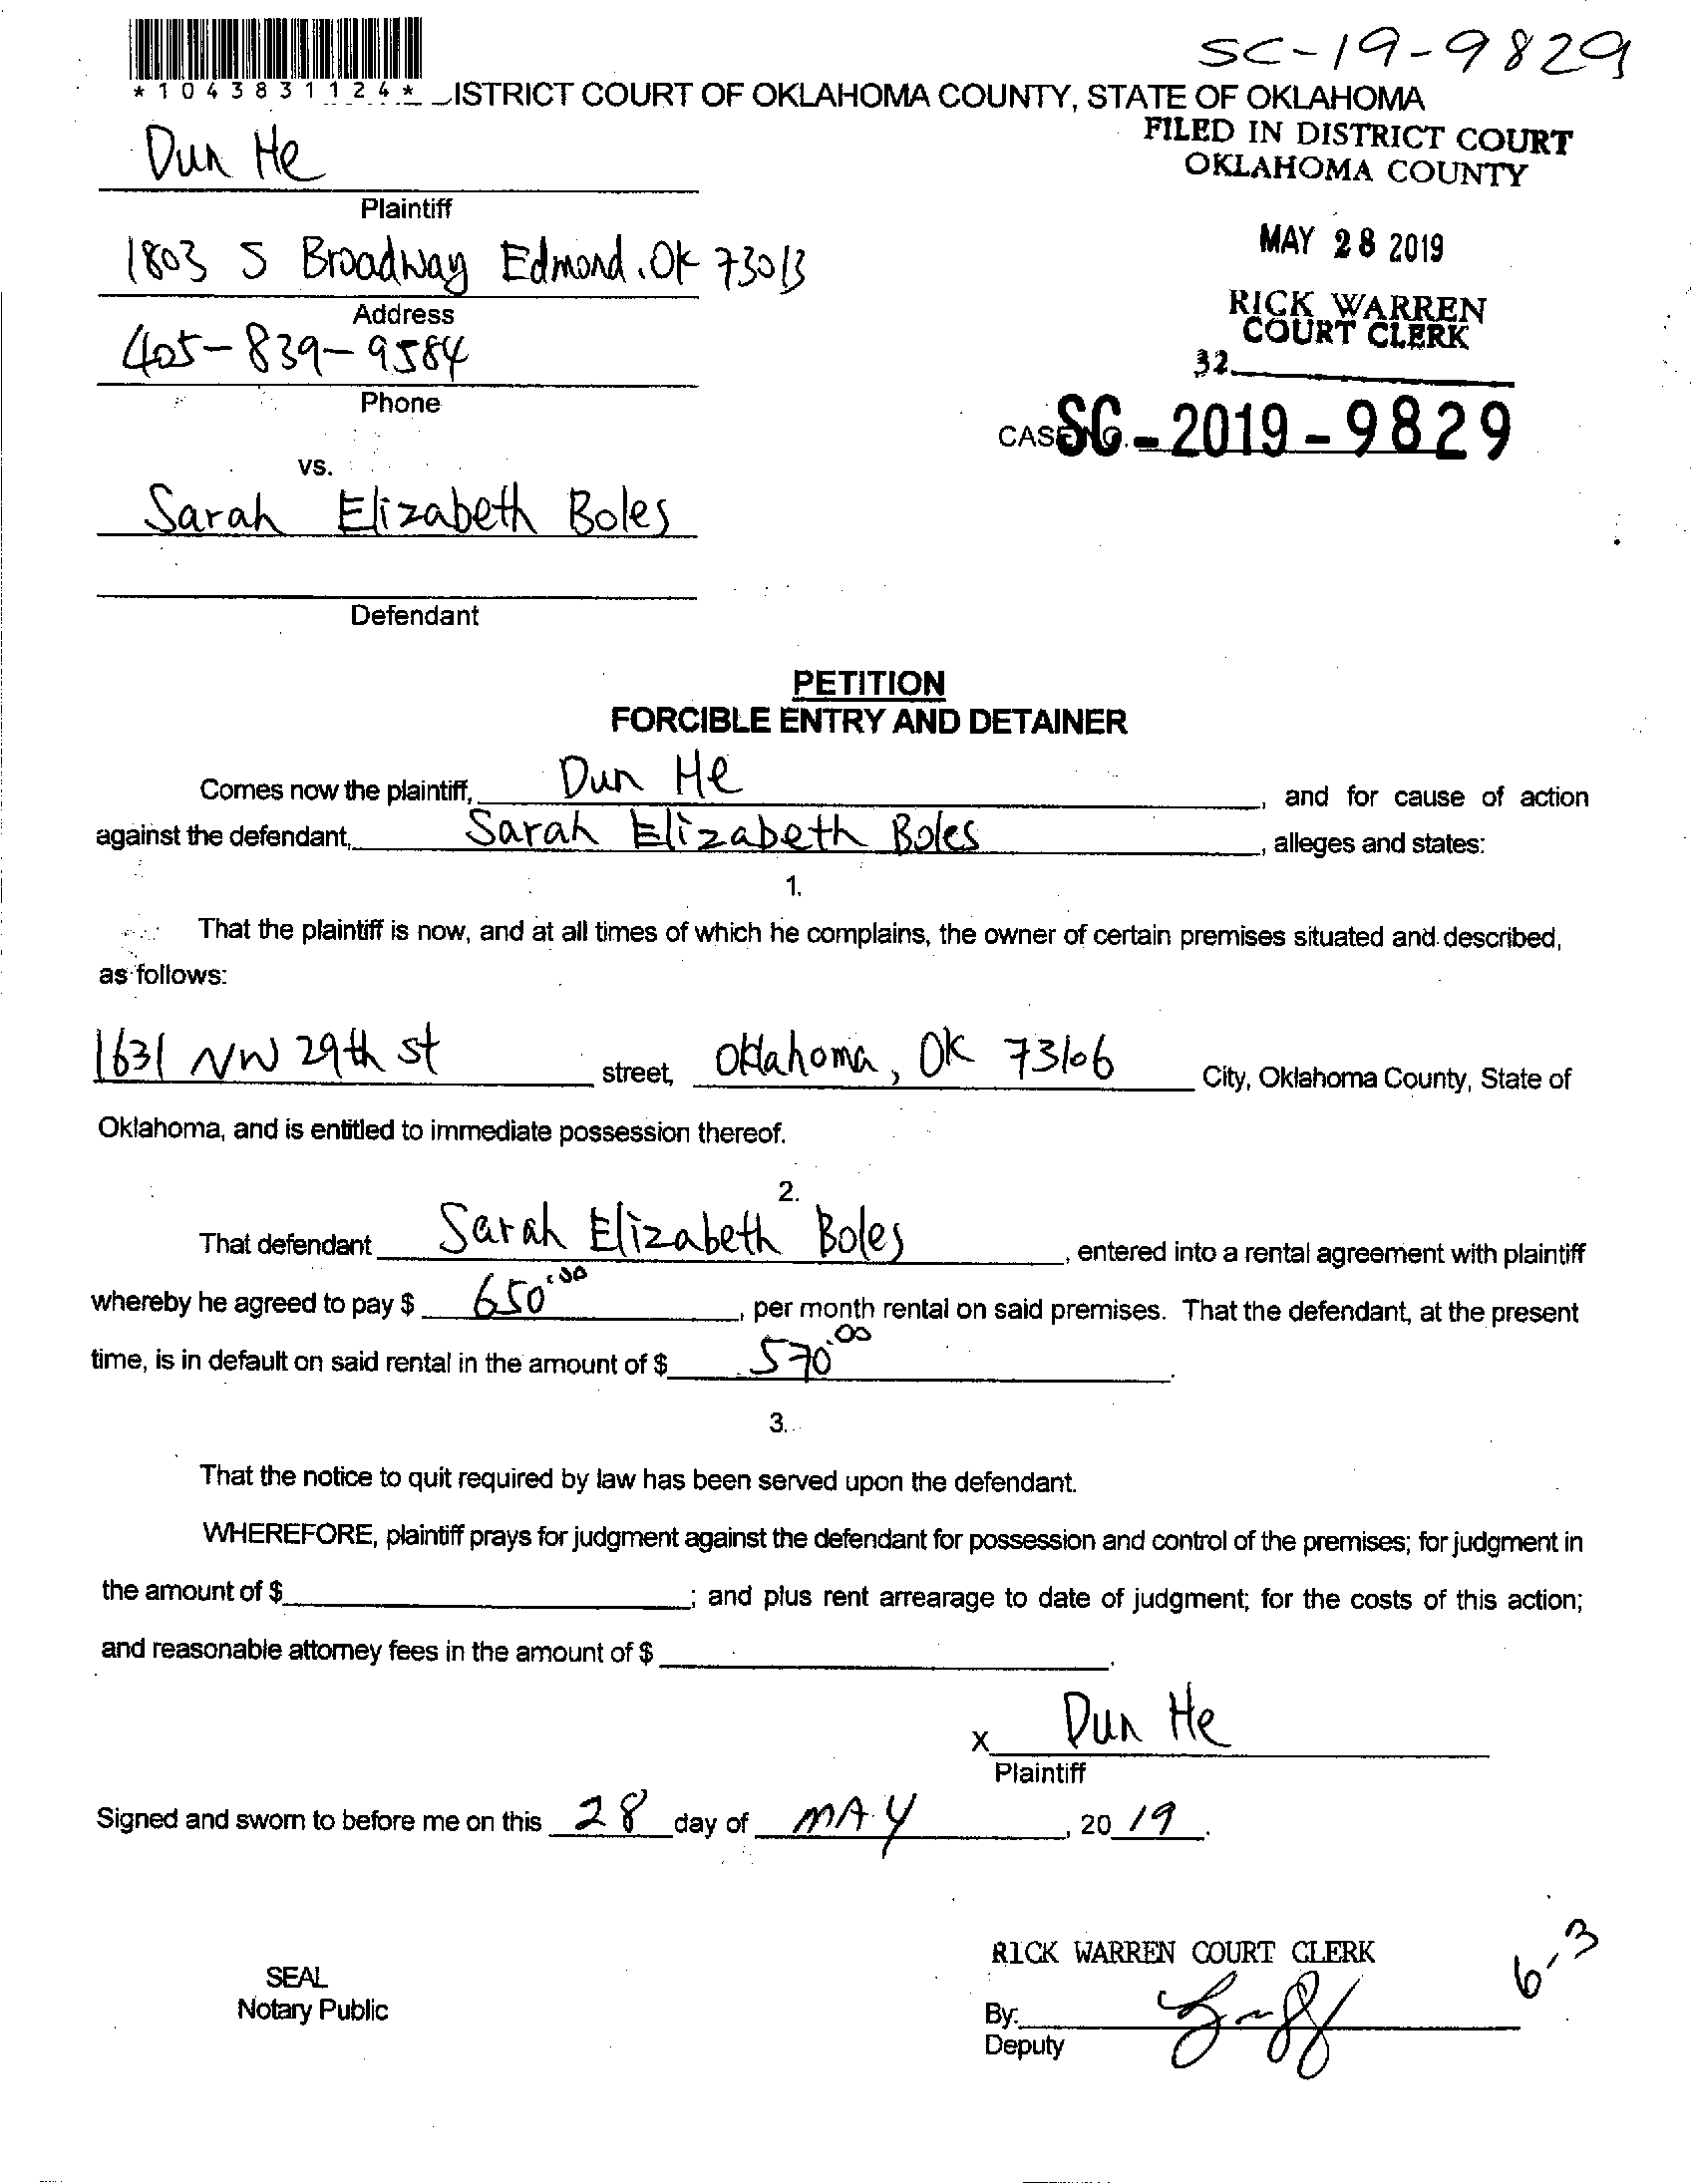 SC-19-9829
*1043831124* ISTRICT COURT OF OKLAHOMA COUNTY, STATE OF OKLAHOMA
FILED IN DISTRICT COURT
OKLAHOMA COUNTY
Dun He
Plaintiff
MAY 28 2019
1803 S Broadway Edmond, OK 73013
Address
RICK WARREN
COURT CLERK
405-839-9584
32
Phone
CASE NO. SC-2019-9829
vs.
Sarah Elizabeth Boles
Defendant
PETITION
FORCIBLE ENTRY AND DETAINER
Comes now the plaintiff, Dun He, and for cause of action
against the defendant, Sarah Elizabeth Boles, alleges and states:
1.
That the plaintiff is now, and at all times of which he complains, the owner of certain premises situated and described,
as follows:
1631 NW 29th st street, Oklahoma, OK 73106 City, Oklahoma County, State of
Oklahoma, and is entitled to immediate possession thereof.
2.
That defendant Sarah Elizabeth Boles, entered into a rental agreement with plaintiff
whereby he agreed to pay $ 650.00, per month rental on said premises. That the defendant, at the present
time, is in default on said rental in the amount of $ 570.00.
3.
That the notice to quit required by law has been served upon the defendant.
WHEREFORE, plaintiff prays for judgment against the defendant for possession and control of the premises; for judgment in
the amount of $ ; and plus rent arrearage to date of judgment; for the costs of this action;
and reasonable attorney fees in the amount of $ .
x Dun He
Plaintiff
Signed and sworn to before me on this 28 day of MAY, 20 19.
RICK WARREN COURT CLERK
6-3
SEAL
Notary Public
By:
Deputy